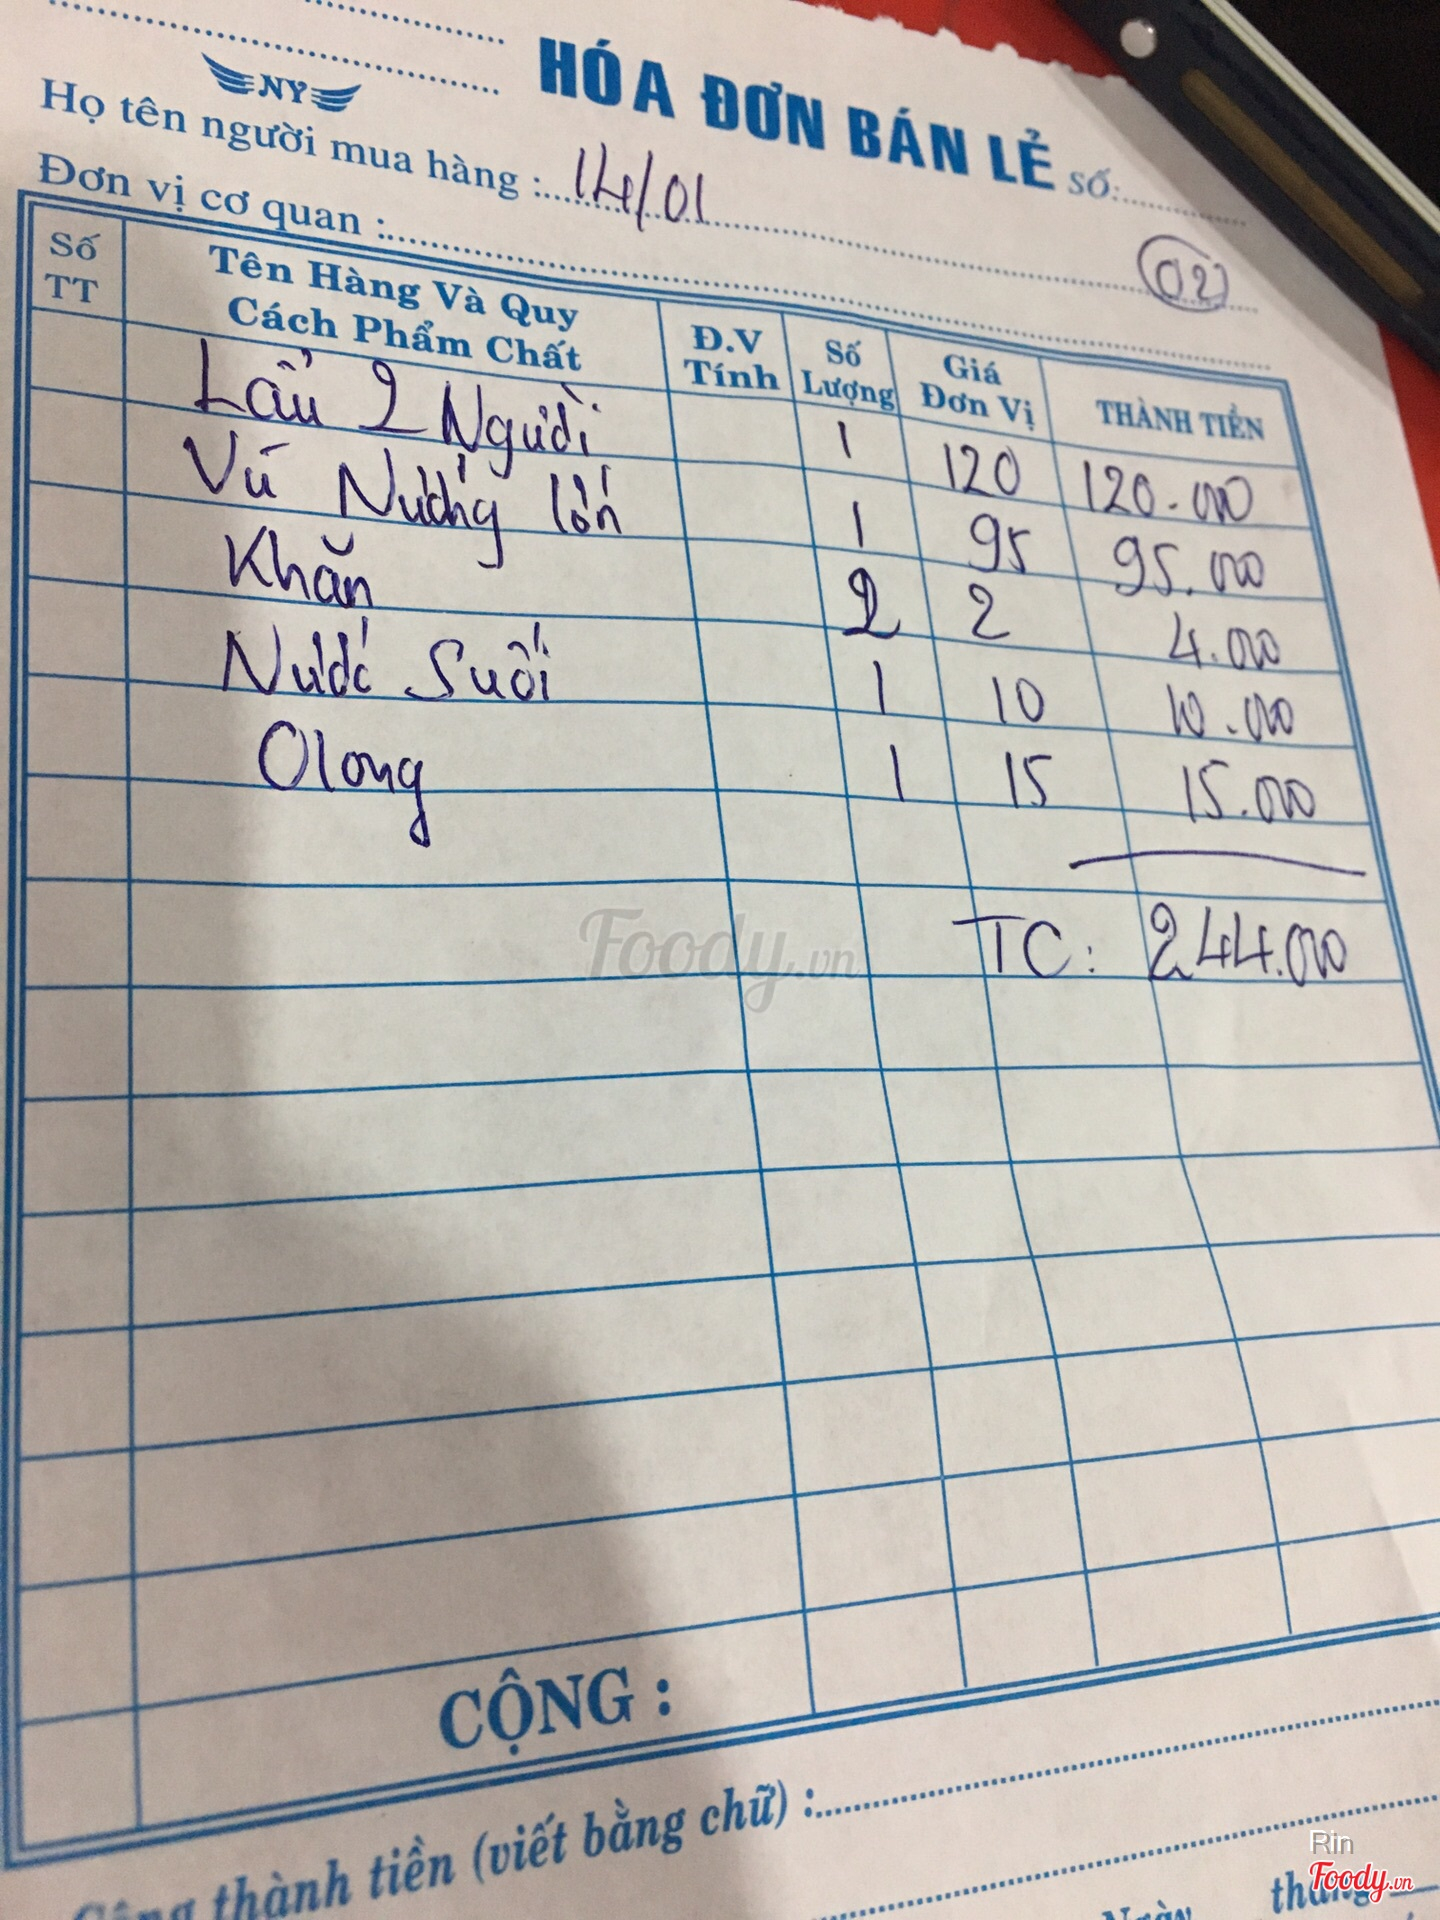 HÓA ĐƠN BÁN LẺ SỐ:
NY
Họ tên người mua hàng : 14/01
Đơn vị cơ quan :
02
Số TT Tên Hàng Và Quy Cách Phẩm Chất Đ.V Tính Số Lượng Giá Đơn Vị THÀNH TIỀN
Lẩu 2 Người 1 120 120.000
Vú Nướng lớn 1 95 95.000
Khăn 2 2 4.000
Nước Suối 1 10 10.000
Olong 1 15 15.000
TC: 244.000
Foody.vn
CỘNG :
Cộng thành tiền (viết bằng chữ) :
Rin
Foody.vn
Ngày tháng